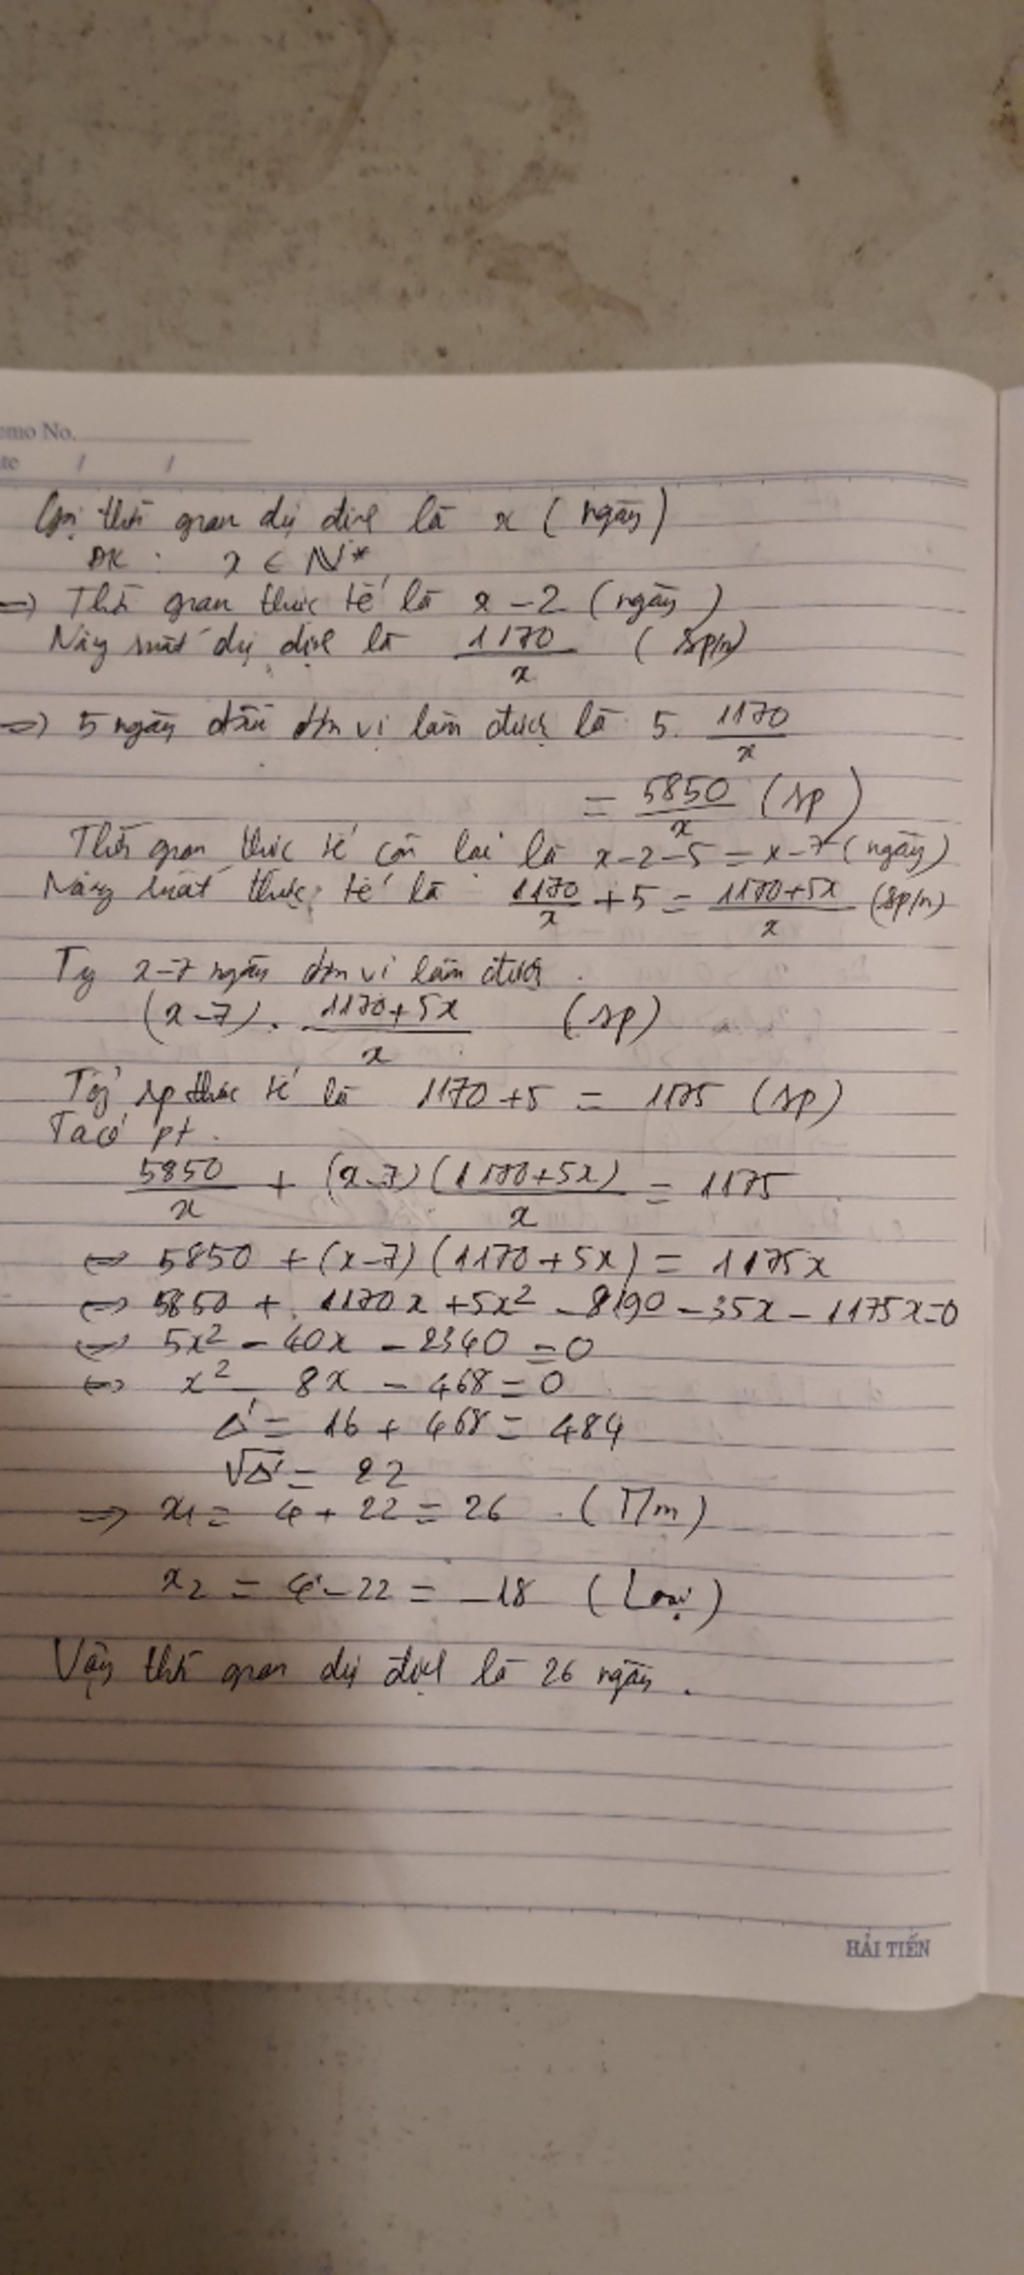 emo No.
te / /
Gọi thời gian dự định là x (ngày)
ĐK : x ∈ N*
=> Thời gian thực tế là x - 2 (ngày)
Năng suất dự định là 1170/x (sp/n)
=> 5 ngày đầu đơn vị làm được là 5. 1170/x
= 5850/x (sp)
Thời gian thực tế còn lại là x-2-5 = x-7 (ngày)
Năng suất thực tế là 1170/x + 5 = 1170+5x/x (sp/n)
x-7 ngày đơn vị làm được
(x-7) . 1170+5x/x (sp)
Tổng sp thực tế là 1170 + 5 = 1175 (sp)
Ta có pt.
5850/x + (x-7)(1170+5x)/x = 1175
<=> 5850 + (x-7)(1170+5x) = 1175x
<=> 5850 + 1170x + 5x² - 8190 - 35x - 1175x=0
<=> 5x² - 40x - 2340 = 0
<=> x² - 8x - 468 = 0
Δ' = 16 + 468 = 484
√Δ' = 22
=> x₁ = 4 + 22 = 26 (T/m)
x₂ = 4 - 22 = -18 (Loại)
Vậy thời gian dự định là 26 ngày.
HẢI TIẾN